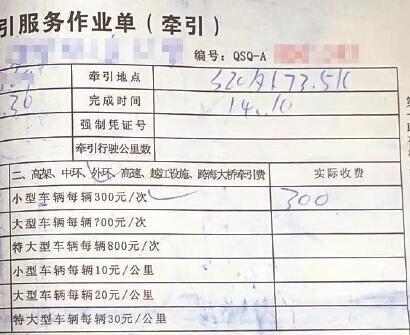 引服务作业单（牵引）
编号：QSQ-A
牵引地点
.30 完成时间 14.10
强制凭证号
牵引行驶公里数
二、高架、中环、外环、高速、越江设施、跨海大桥牵引费 实际收费
小型车辆每辆300元/次 300
大型车辆每辆700元/次
特大型车辆每辆800元/次
小型车辆每辆10元/公里
大型车辆每辆20元/公里
特大型车辆每辆30元/公里